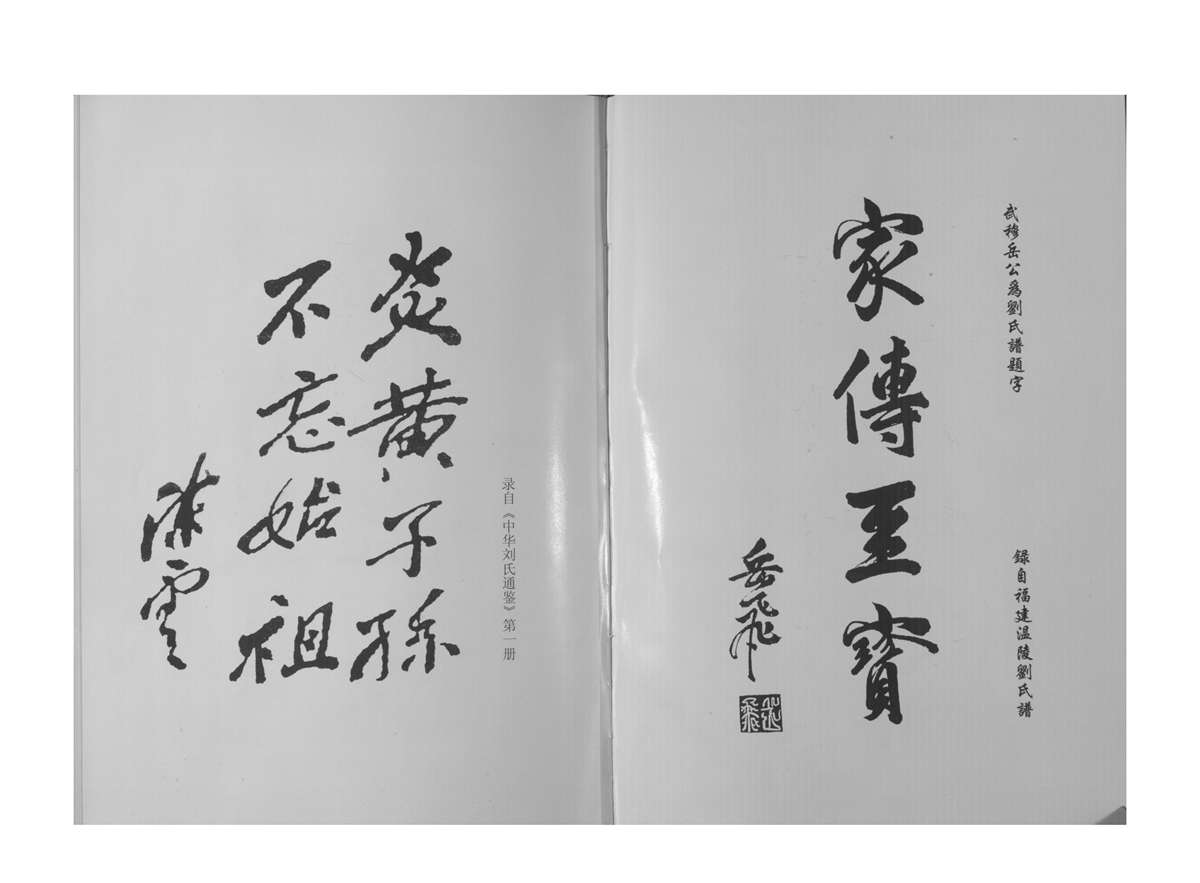 武穆岳公爲劉氏譜題字
錄自福建温陵劉氏譜
家傳至寳
岳飛
岳飛
录自《中华刘氏通鉴》第一册
炎黄子孫
不忘始祖
陈雲